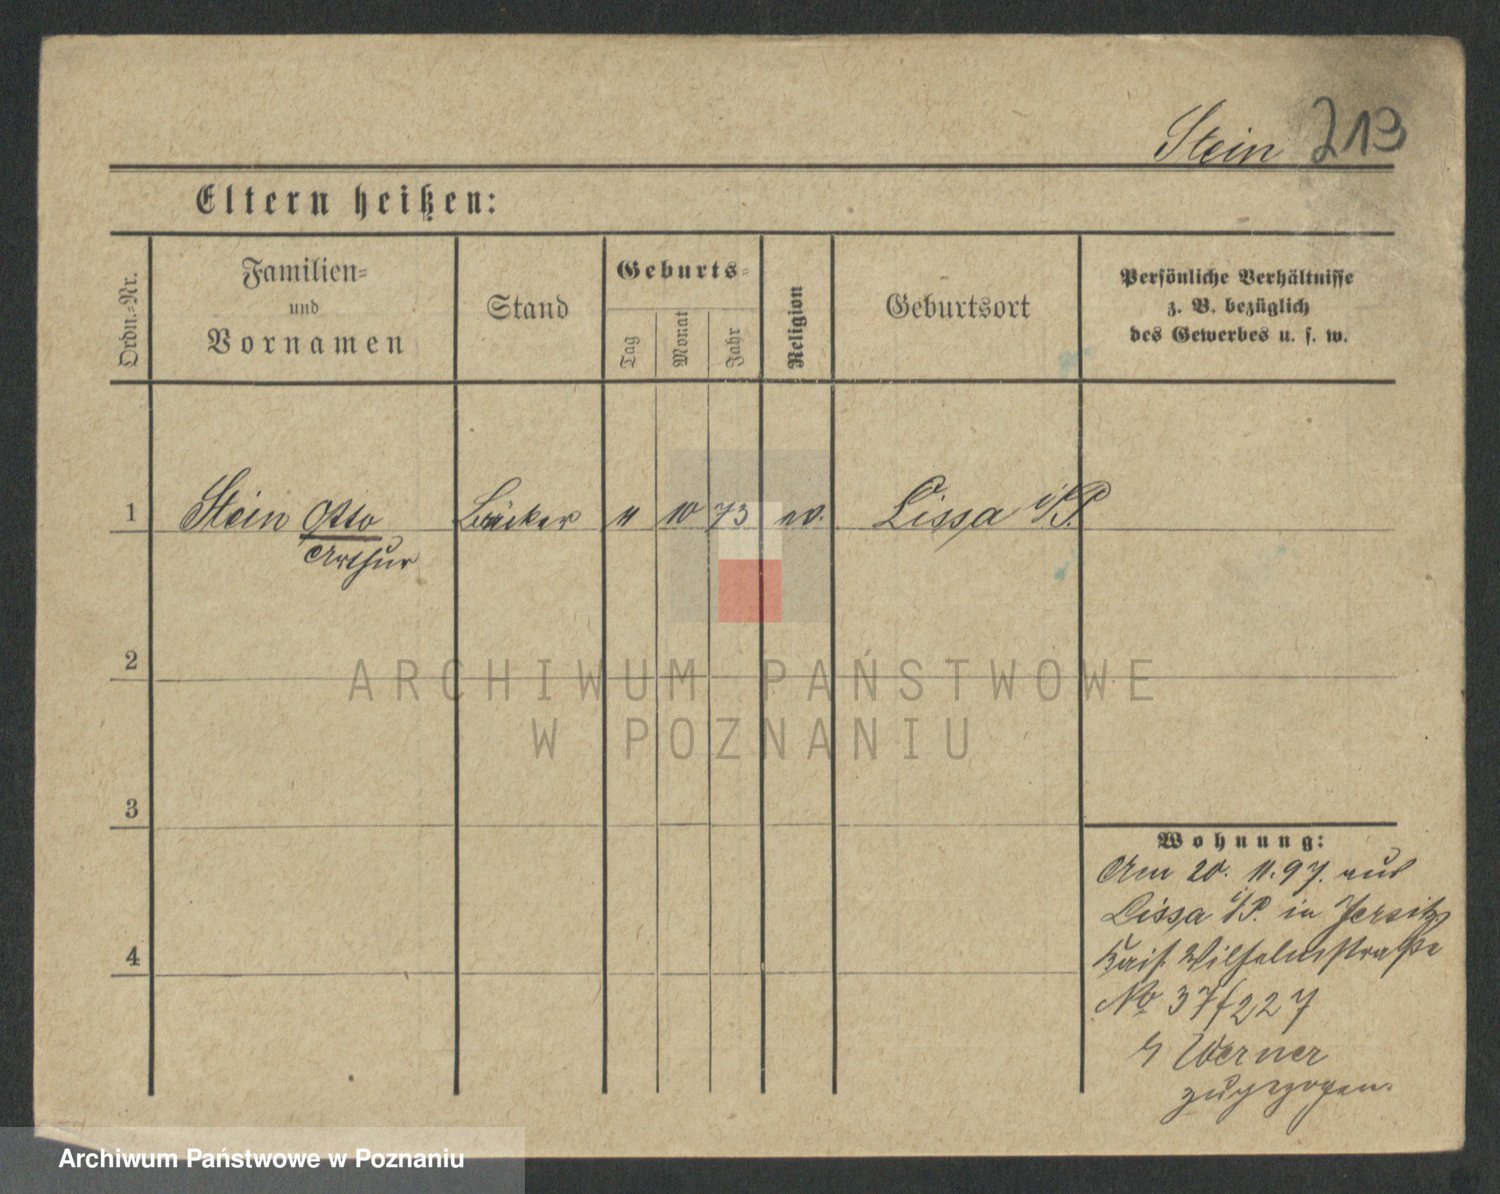 Stein 213
Eltern heißen:
Ordn.-Nr.
Familien-
und
Vornamen
Stand
Geburts-
Tag
Monat
Jahr
Religion
Geburtsort
Persönliche Verhältnisse
z. B. bezüglich
des Gewerbes u. s. w.
1 Stein Otto Bäcker 11 10 73 ev. Lissa i/P.
Arthur
2
3
4
Wohnung:
Am 20. 11. 97. aus
Lissa i/P. in Jersitz
Kais. Wilhelmstraße
No 37/227
Werner
zugezogen.
ARCHIWUM PAŃSTWOWE
W POZNANIU
Archiwum Państwowe w Poznaniu